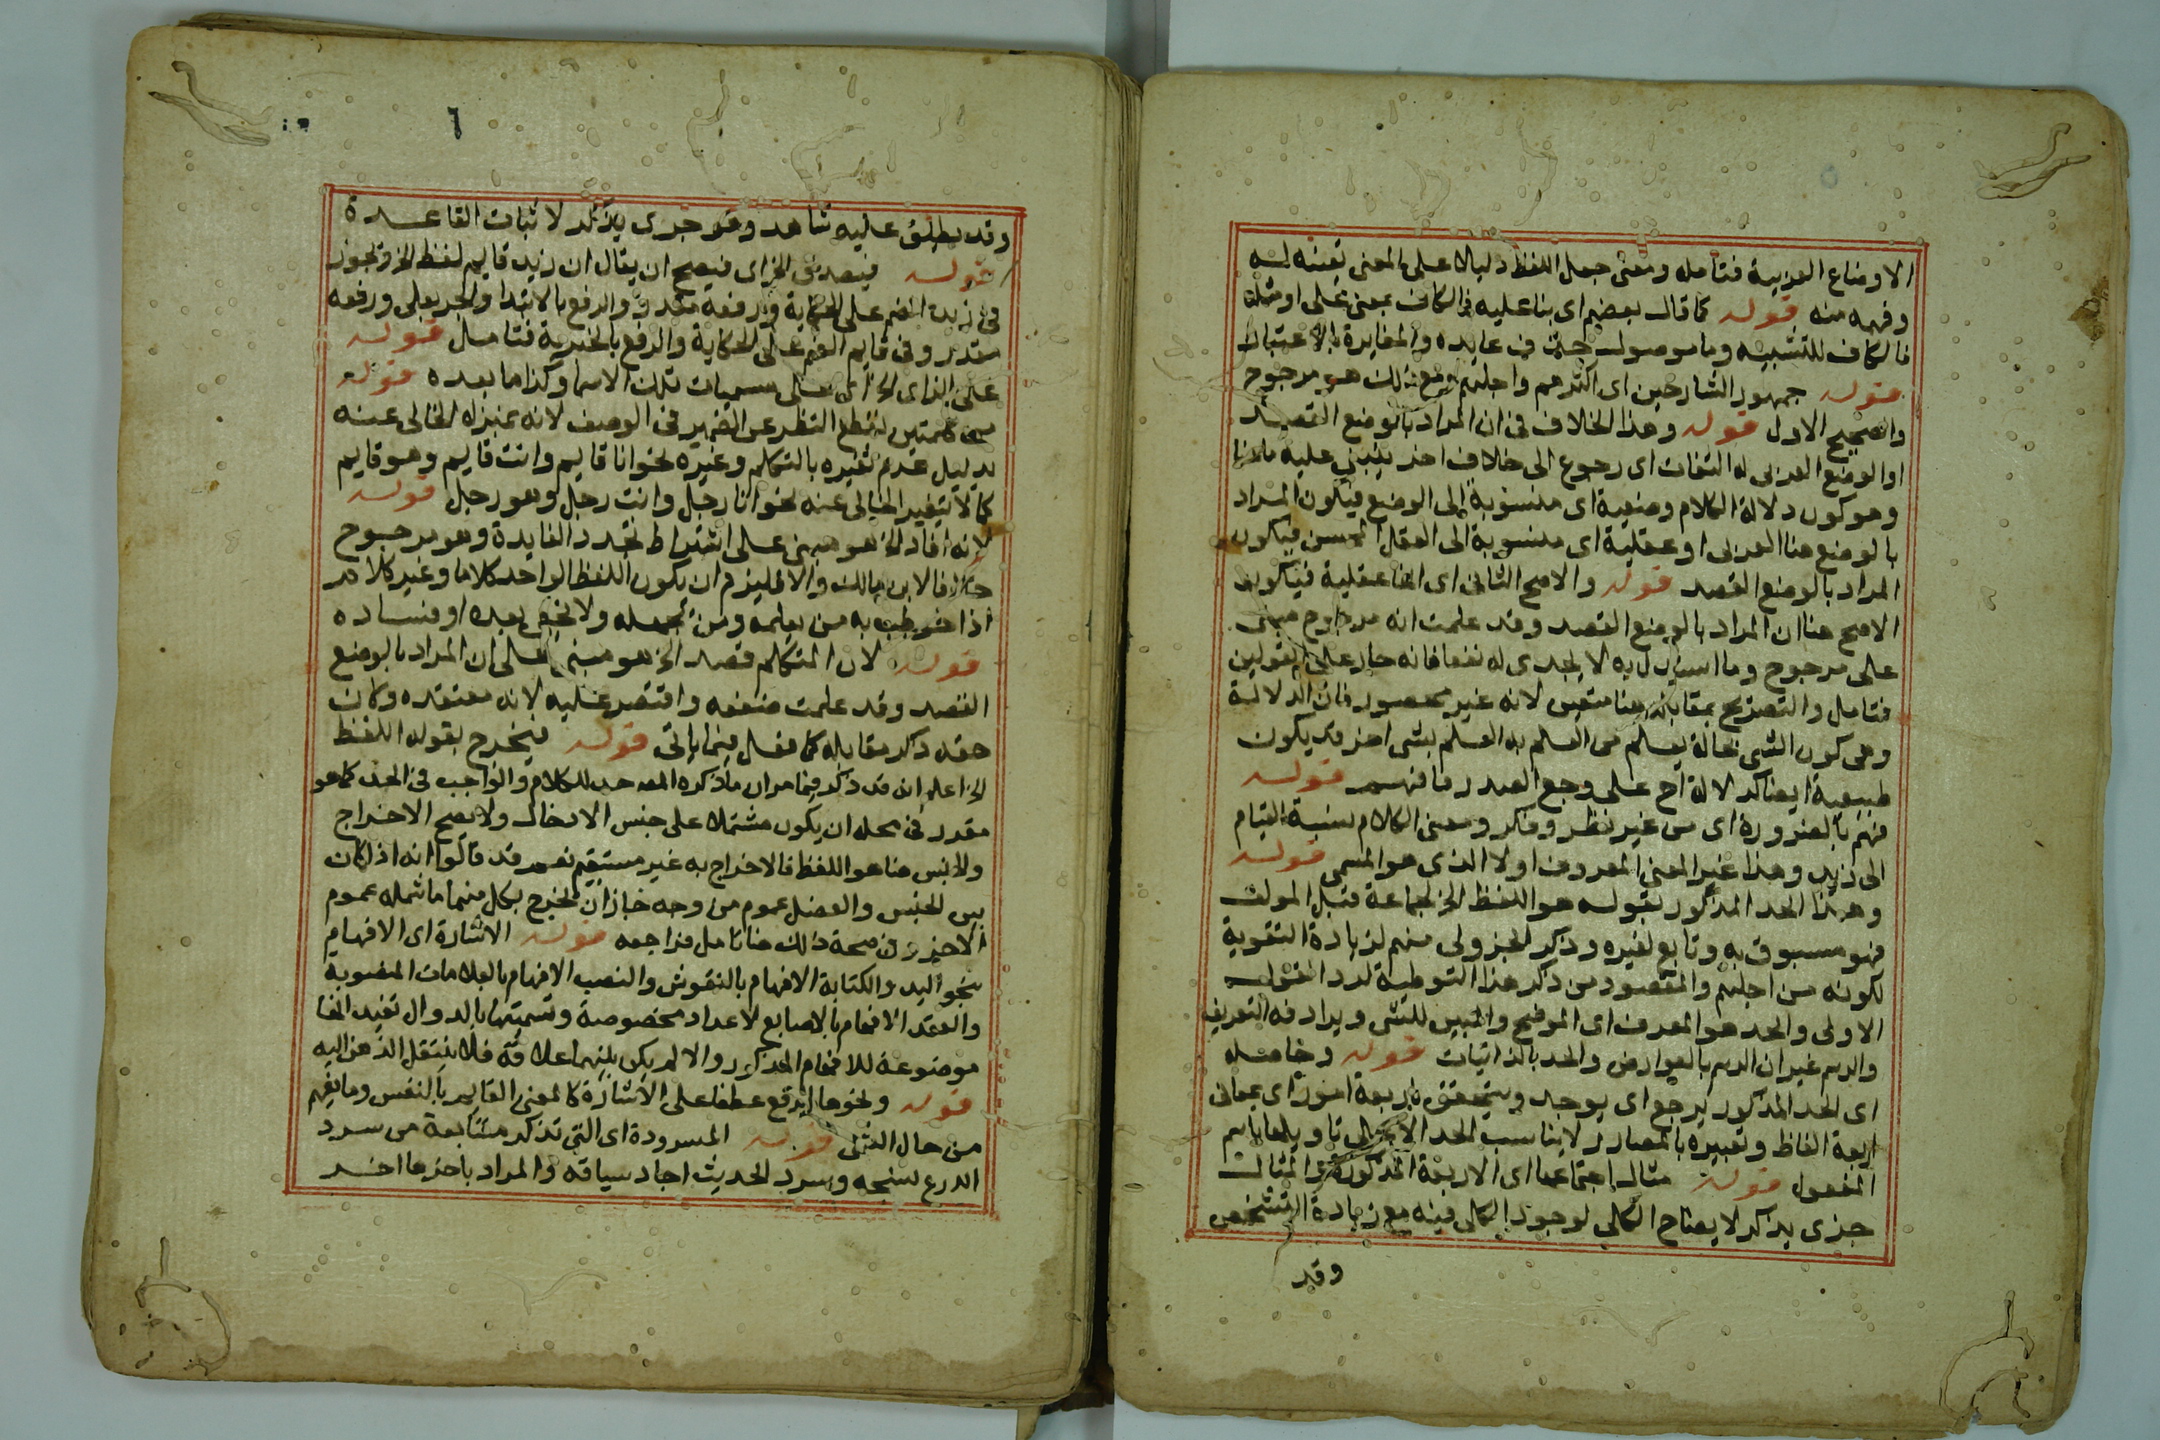 الاوضاع العربية فتامله ومعنى جعل اللفظ دليلا على المعنى تعينه له
وفهمه منه قوله كما قال بعضهم اى بنا عليه فالكاف بمعنى على او مثله
فالكاف للتشبيه وما موصولة حذف عايده والمغايرة بالاعتبار
قوله جمهور الشارحين اى اكثرهم واجلهم ومع ذلك هو مرجوح
والصحيح الاول قوله وهذا الخلاف فى ان المراد بالوضع القصد
او الوضع العربى له التفات اى رجوع الى خلاف اخر ينبنى عليه
وهو كون دلالة الكلام وضعية اى منسوبة الى الوضع فيكون المراد
بالوضع هنا العربى او عقلية اى منسوبة الى العقل فيكون
المراد بالوضع القصد قوله والاصح الثانى اى انها عقلية فيكون
الاصح هنا ان المراد بالوضع القصد وقد علمت انه مرجوح مبنى
على مرجوح وما استدل به لا يجدى له نفعا فانه جار على القولين
فتامل والتصريح بمقابله هنا متعين لانه غير محصور فان الدلالة
وهى كون الشى بحالة يعلم من العلم به العلم بشى اخر قد يكون
طبيعية ايضا كدلالة اح على وجع الصدر فافهم قوله
فهم بالضرورة اى من غير نظر وفكر ومعنى الكلام نسبة القيام
الى زيد وهذا غير المعنى المعروف اولا الذى هو المسمى قوله
وهذا الحد المذكور بقوله هو اللفظ الخ لجماعة قبل المولف
فهو مسبوق به وتابع لغيره وذكر الجزولى منهم لزيادة التقوية
لكونه من اجلهم والمقصود من ذكر هذا التوطية لرد القول
الاولى والحد هو المعرف اى الموضح والمبين للشى ويرادفه التعريف
والرسم غير ان الرسم بالعوارض والحد بالذاتيات قوله وحاصله
اى الحد المذكور يرجع اى يوجد ويتحقق باربعة امور اى بمعانى
اربعة الفاظ وتعبيره بالمصادر لا يناسب الحد تاويلها باسم
المفعول قوله مثال اجتماعها اى الاربعة المذكورة والمثال
جزى يذكر لايضاح الكلى لوجود الكلى فيه مع زيادة التشخص
وقد
٦
وقد يطلق عليه شاهد وهو جزى يذكر لاثبات القاعدة
قوله فيصدق الخ اى فيصح ان يقال ان زيد قايم لفظ الخ ويجوز
فى زيد الضم على الحكاية ورفعه مقدر والرفع بالابتدا والجر بعلى ورفعه
مقدر وفى قايم الضم على الحكاية والرفع بالخبرية فتامل قوله
على الزاى الخ اى على مسميات تلك الاسما وكذا ما بعده قوله
من كلمتين لقطع النظر عن الضمير فى الوصف لانه بمنزلة الخالى عنه
بدليل عدم تغيره بالتكلم وغيره نحو انا قايم وانت قايم وهو قايم
كما لا يتغير الخالى عنه نحو انا رجل وانت رجل وهو رجل قوله
لانه افاد الخ هو مبنى على اشتراط تجدد الفايدة وهو مرجوح
خلافا لابن مالك والا لليزم ان يكون اللفظ الواحد كلاما وغير كلام
اذا خوطب به من يعلمه ومن يجهله ولا يخفى بعده او فساده
قوله لان المتكلم قصد الخ هو مبنى على ان المراد بالوضع
القصد وقد علمت ضعفه واقتصر عليه لانه معتقده وكان
حقه ذكر مقابله كما فعل فيما ياتى قوله فيخرج بقوله اللفظ
الخ اعلم انه قد ذكر فيما مر ان ما ذكره المص حد للكلام والواجب فى الحد كما هو
مقدر فى محله ان يكون مشتملا على جنس الادخال ولا يصح الاخراج
والجنس هنا هو اللفظ فالاخراج به غير مستقيم نعم قد قالوا انه اذا كان
بين الجنس والفصل عموم من وجه جاز ان يخرج بكل منهما ما شمله عموم
الاخر وفى صحة ذلك هنا تامل فراجعه قوله الاشارة اى الافهام
بنحو اليد والكتابة الافهام بالنقوش والنصب الافهام بالعلامات المنصوبة
والعقد الافهام بالاصابع لاعداد مخصوصة وتسميتها بالدوال تفيد انها
موضوعة للافهام المذكور والا لم يكن بينهما علاقة فلا ينتقل الذهن اليه
قوله ونحوها الرفع عطفا على الاشارة كالمعنى القايم بالنفس وما يفهم
من حال الشى قوله المسرودة اى التى تذكر متتابعة من سرد
الدرع نسجه وسرد الحديث اجاد سياقه والمراد باخرها اخر